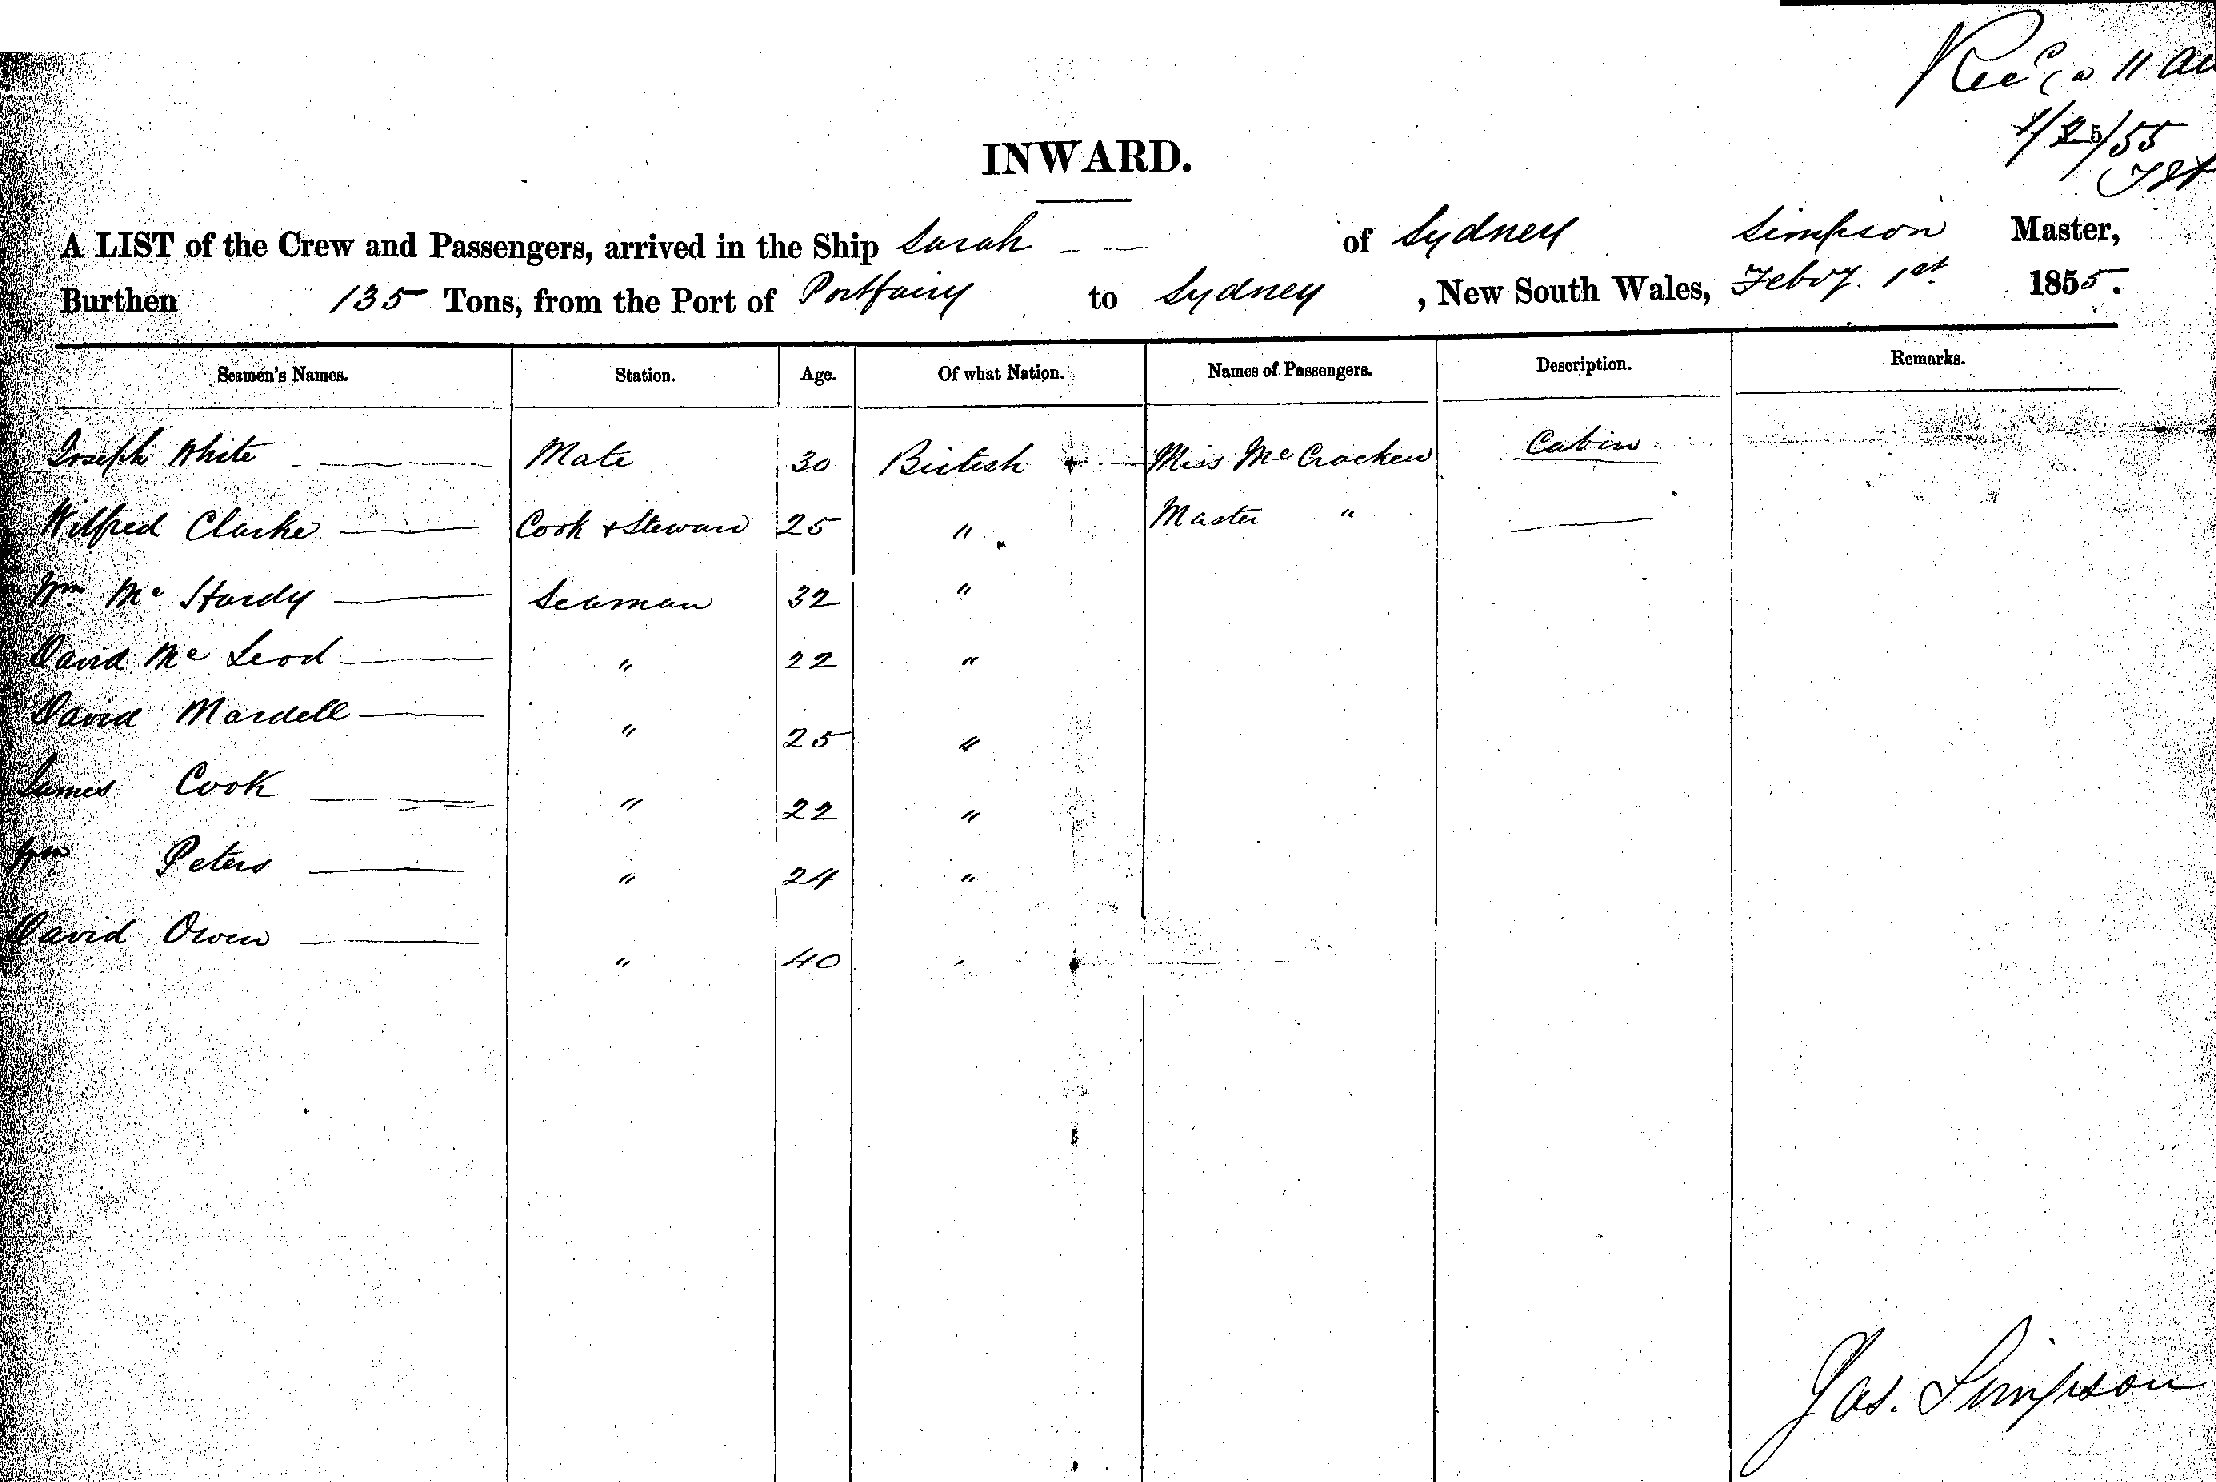 Recd 11
1/2/55
INWARD.
A LIST of the Crew and Passengers, arrived in the Ship Sarah of Sydney Simpson Master,
Burthen 135 Tons, from the Port of Portfairy to Sydney , New South Wales, Feby. 1st 1855.
Seamen's Names. Station. Age. Of what Nation. Names of Passengers. Description. Remarks.
Joseph White Mate 30 British Miss McCracken Cabin
Wilfred Clarke Cook & Steward 25 " Master " 
Wm McHardy Seaman 32 "
David McLeod " 22 "
David Mardell " 25 "
James Cook " 22 "
Wm Peters " 24 "
David Owen " 40 "
Jas. Simpson